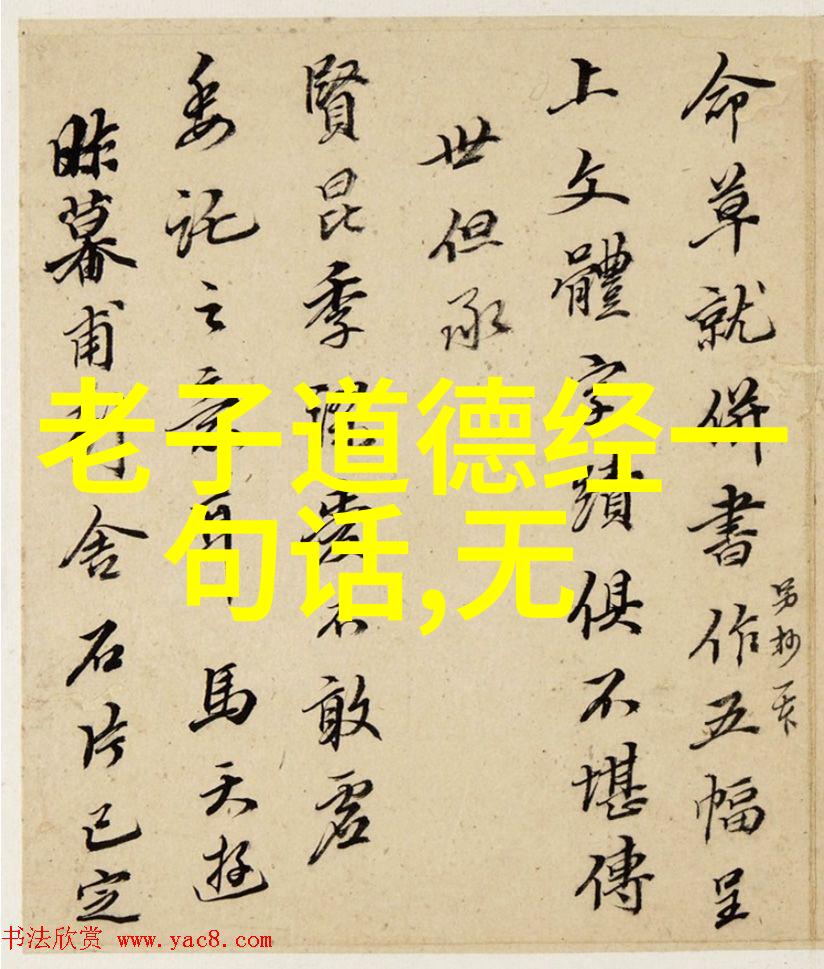 命草就併書作五幅呈
另抄
上文體字蹟俱不堪傳
世但承
賢昆季不敢虛
委託之意耳馬天遊
昨暮甫到舍石片已定
老子道德经一
句话,无
书法欣赏 www.yac8.com